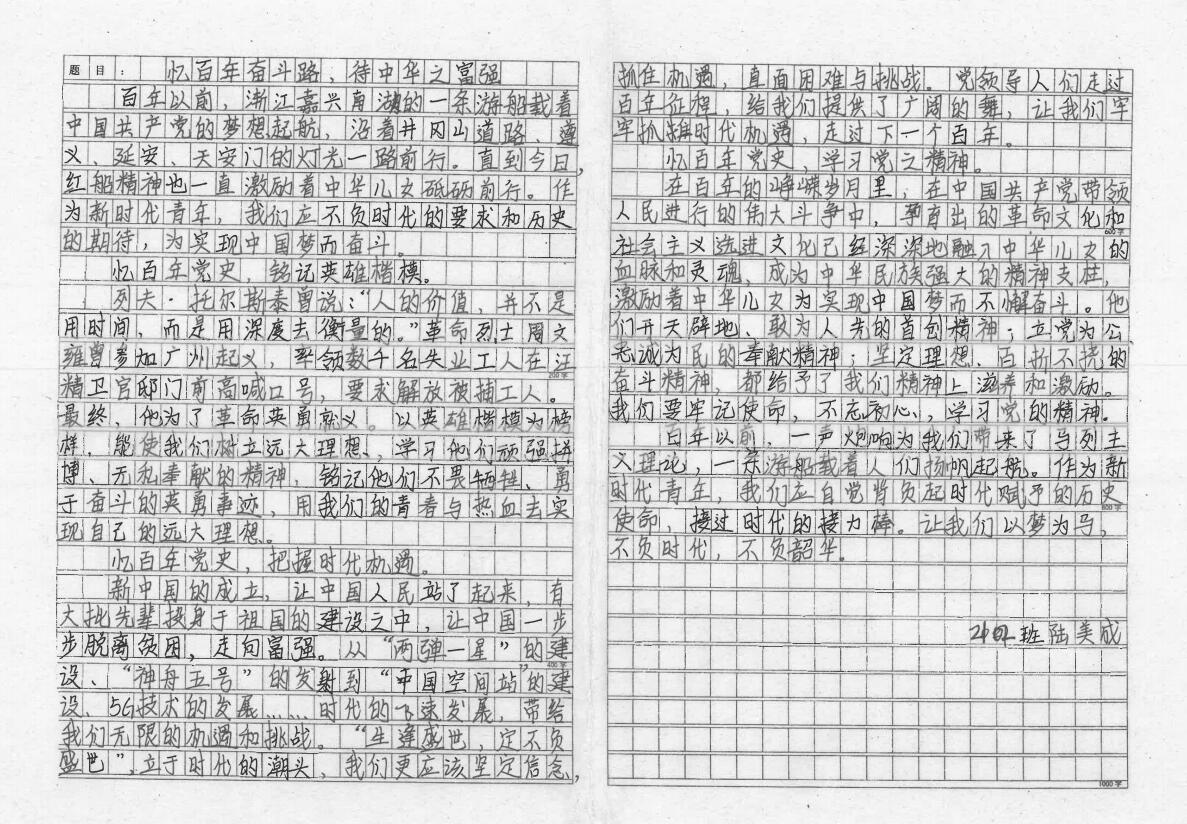 题目：忆百年奋斗路，待中华之富强
百年以前，浙江嘉兴南湖的一条游船载着
中国共产党的梦想起航，沿着井冈山道路、遵
义、延安、天安门的灯光一路前行。直到今日，
红船精神也一直激励着中华儿女砥砺前行。作
为新时代青年，我们应不负时代的要求和历史
的期待，为实现中国梦而奋斗。
忆百年党史，铭记英雄楷模。
列夫·托尔斯泰曾说：“人的价值，并不是
用时间，而是用深度去衡量的。”革命烈士周文
雍曾参加广州起义，率领数千名失业工人在汪
200字
精卫官邸门前高喊口号，要求解放被捕工人。
最终，他为了革命英勇就义。以英雄楷模为榜
样，能使我们树立远大理想，学习他们顽强拼
博、无私奉献的精神，铭记他们不畏牺牲、勇
于奋斗的英勇事迹，用我们的青春与热血去实
现自己的远大理想。
忆百年党史，把握时代机遇。
新中国的成立，让中国人民站了起来，有
大批先辈投身于祖国的建设之中，让中国一步
步脱离贫困，走向富强。从“两弹一星”的建
400字
设、“神舟五号”的发射到“中国空间站”的建
设、5G技术的发展……时代的飞速发展，带给
我们无限的机遇和挑战。“生逢盛世，定不负
盛世”，立于时代的潮头，我们更应该坚定信念，
抓住机遇，直面困难与挑战。党领导人们走过
百年征程，给我们提供了广阔的舞，让我们牢
牢抓住时代机遇，走过下一个百年。
忆百年党史，学习党之精神。
在百年的峥嵘岁月里，在中国共产党带领
人民进行的伟大斗争中，孕育出的革命文化和
600字
社会主义先进文化已经深深地融入中华儿女的
血脉和灵魂，成为中华民族强大的精神支柱，
激励着中华儿女为实现中国梦而不懈奋斗。他
们开天辟地、敢为人先的首创精神；立党为公、
忠诚为民的奉献精神；坚定理想、百折不挠的
奋斗精神，都给予了我们精神上滋养和激励。
我们要牢记使命，不忘初心，学习党的精神。
百年以前，一声炮响为我们带来了马列主
义理论，一条游船载着人们扬帆起航。作为新
时代青年，我们应自觉背负起时代赋予的历史
800字
使命，接过时代的接力棒。让我们以梦为马，
不负时代，不负韶华。
2102班陆美成
1000字